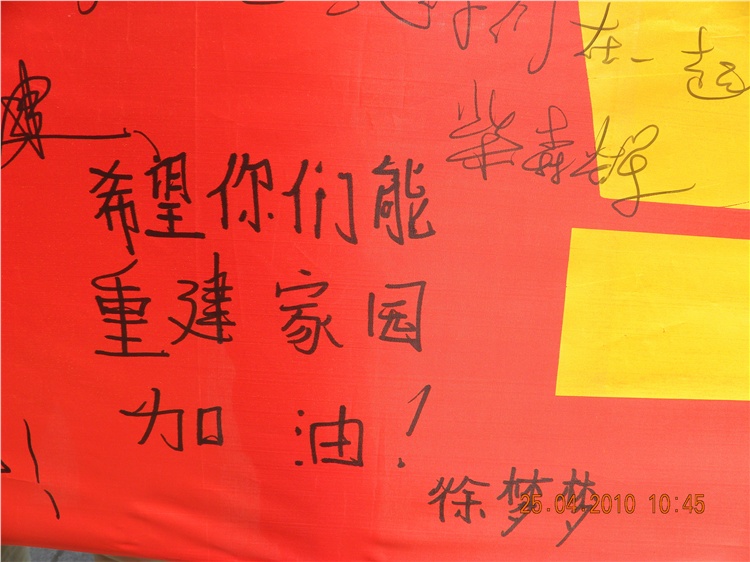 们在一起
柴森辉
希望你们能
重建家园
加油！
徐梦梦
25.04.2010 10:45